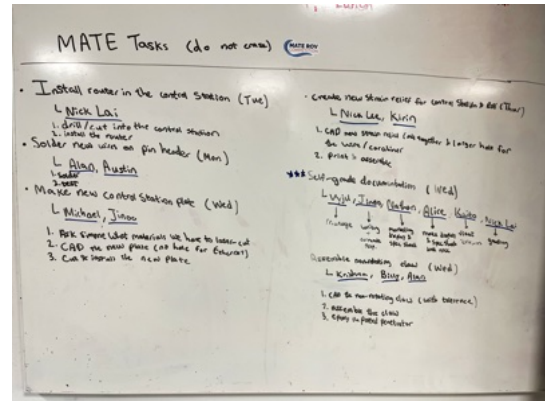 MATE Tasks (do not erase) MATE ROV
• Install router in the control station (Tue)
↳ Nick Lai
1. drill/cut into the control station
2. install the router
• Solder new wires on pin header (Mon)
↳ Alan, Austin
1. solder
2. test
• Make new control station plate (Wed)
↳ Michael, Jinos
1. Ask Simone what materials we have to laser-cut
2. CAD the new plate (a hole for Ethernet)
3. Cut & install the new plate
• Create new strain relief for control station & ROV (Thur)
↳ Kirin
1. CAD new strain relief together & larger hole for
the wire / carabiner
2. print & assemble
*** Self-grade documentation (Wed)
↳ Nathan, Alice, Nick Lai
grading
Assemble claw (Wed)
↳ Krishna, Billy, Alan
1. CAD the non-rotating claw (with tolerance)
2. assemble the claw
3. epoxy penetrator